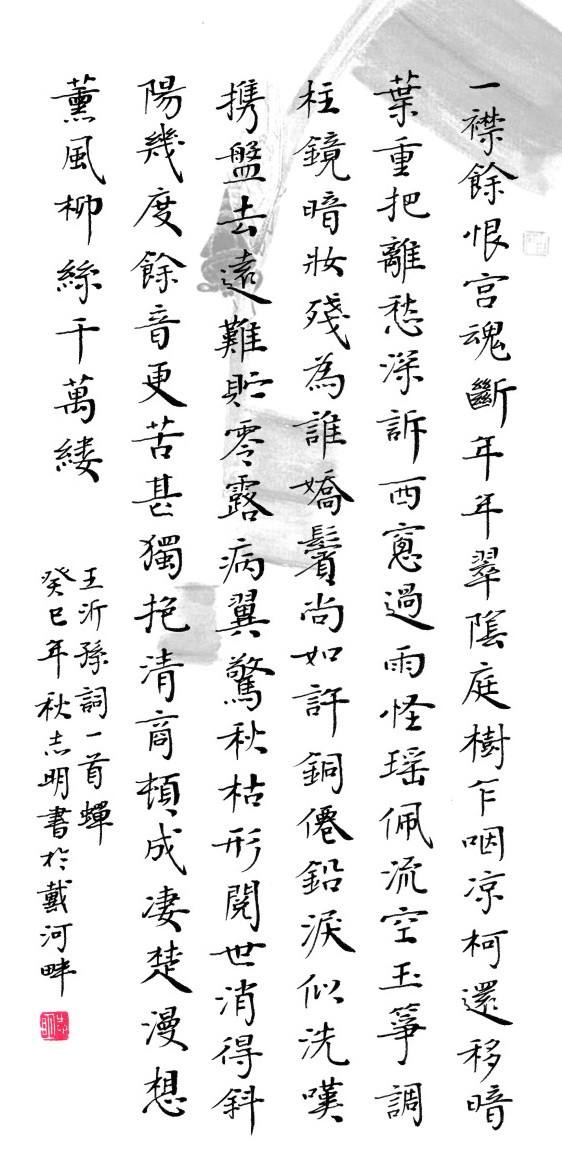 一襟餘恨宮魂斷年年翠陰庭樹乍咽凉柯還移暗
葉重把離愁深訴西窻過雨怪瑶佩流空玉箏調
柱鏡暗妝殘為誰嬌鬢尚如許銅僊鉛淚似洗嘆
携盤去遠難貯零露病翼驚秋枯形閱世消得斜
陽幾度餘音更苦甚獨抱清商頓成凄楚漫想
薰風柳絲千萬縷
王沂孫詞一首蟬
癸巳年秋志明書於戴河畔